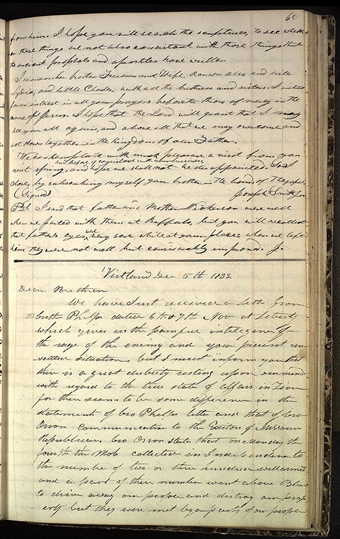 62
from him. I hope you will search the scriptures, to see whether
these things are not also consistant with those things that
the ancient prophets and apostles have written.
I remember brother Freeman and Wife, Ransom also and sister
Lydia, and little Charles, with all the brethren and sisters. I intreat
an interest in all your prayers before the throne of mercy in the
name of Jesus. I hope that the Lord will grant that I may
see you all again, and above all that we may overcome and
sit down together in the kingdom of our Father.
We contemplate with much pleasure a visit from you
next spring, and hope we shall not be disappointed. I
close, by subscribing myself, your brother in the bonds of the gospel
(Signed) Joseph Smith Jr
PS. I found that father and Mother Nickerson were
when we parted with them at Buffalo, but you will recollect
that father's eyes were very sore while at your place, when we left
him they were not well but considerably improved. Jr
Kirtland Dec 5th 1833.
Dear Brethren
We have just received a letter from
brother Phelps dated 6th & 7th Nov at Liberty
which gives us the painful inteligence of
the rage of the enemy and your present un
settled situation but I must inform you that
there is a great dubiety resting upon our minds
with regard to the true state of affairs in Zion
for there seems to be some difference in the
statements of bro Phelps letter and that of bro
Orson communication to the Editor of Missouri
Republican bro Orson states that on Monday the
fourth the Mob collected in Independence to
the number of two or three hundred well armed
and a part of their number went above Blue
to drive away our people and destroy our prop
erty but they were met by a party of our people